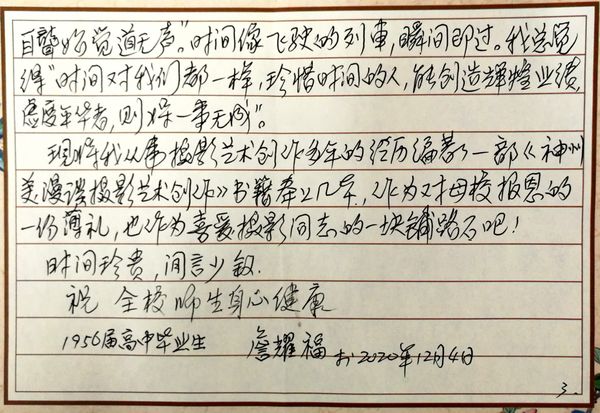 自聋始觉道无声"。时间像飞驶的列車，瞬间即过。我总觉
得"时间对我们都一样，珍惜时间的人，能创造輝煌业绩，
虚度年华者，则将一事无成"。
现将我从事摄影艺术创作多年的经历编著了一部《神州
美漫谈摄影艺术创作》书籍奉上几本，作为对母校报恩的
一份薄礼，也作为喜爱摄影同志的一块铺路石吧！
时间珍贵，闲言少叙.
祝 全校师生身心健康
1956届高中毕业生 詹耀福 于2020年12月4日
3.